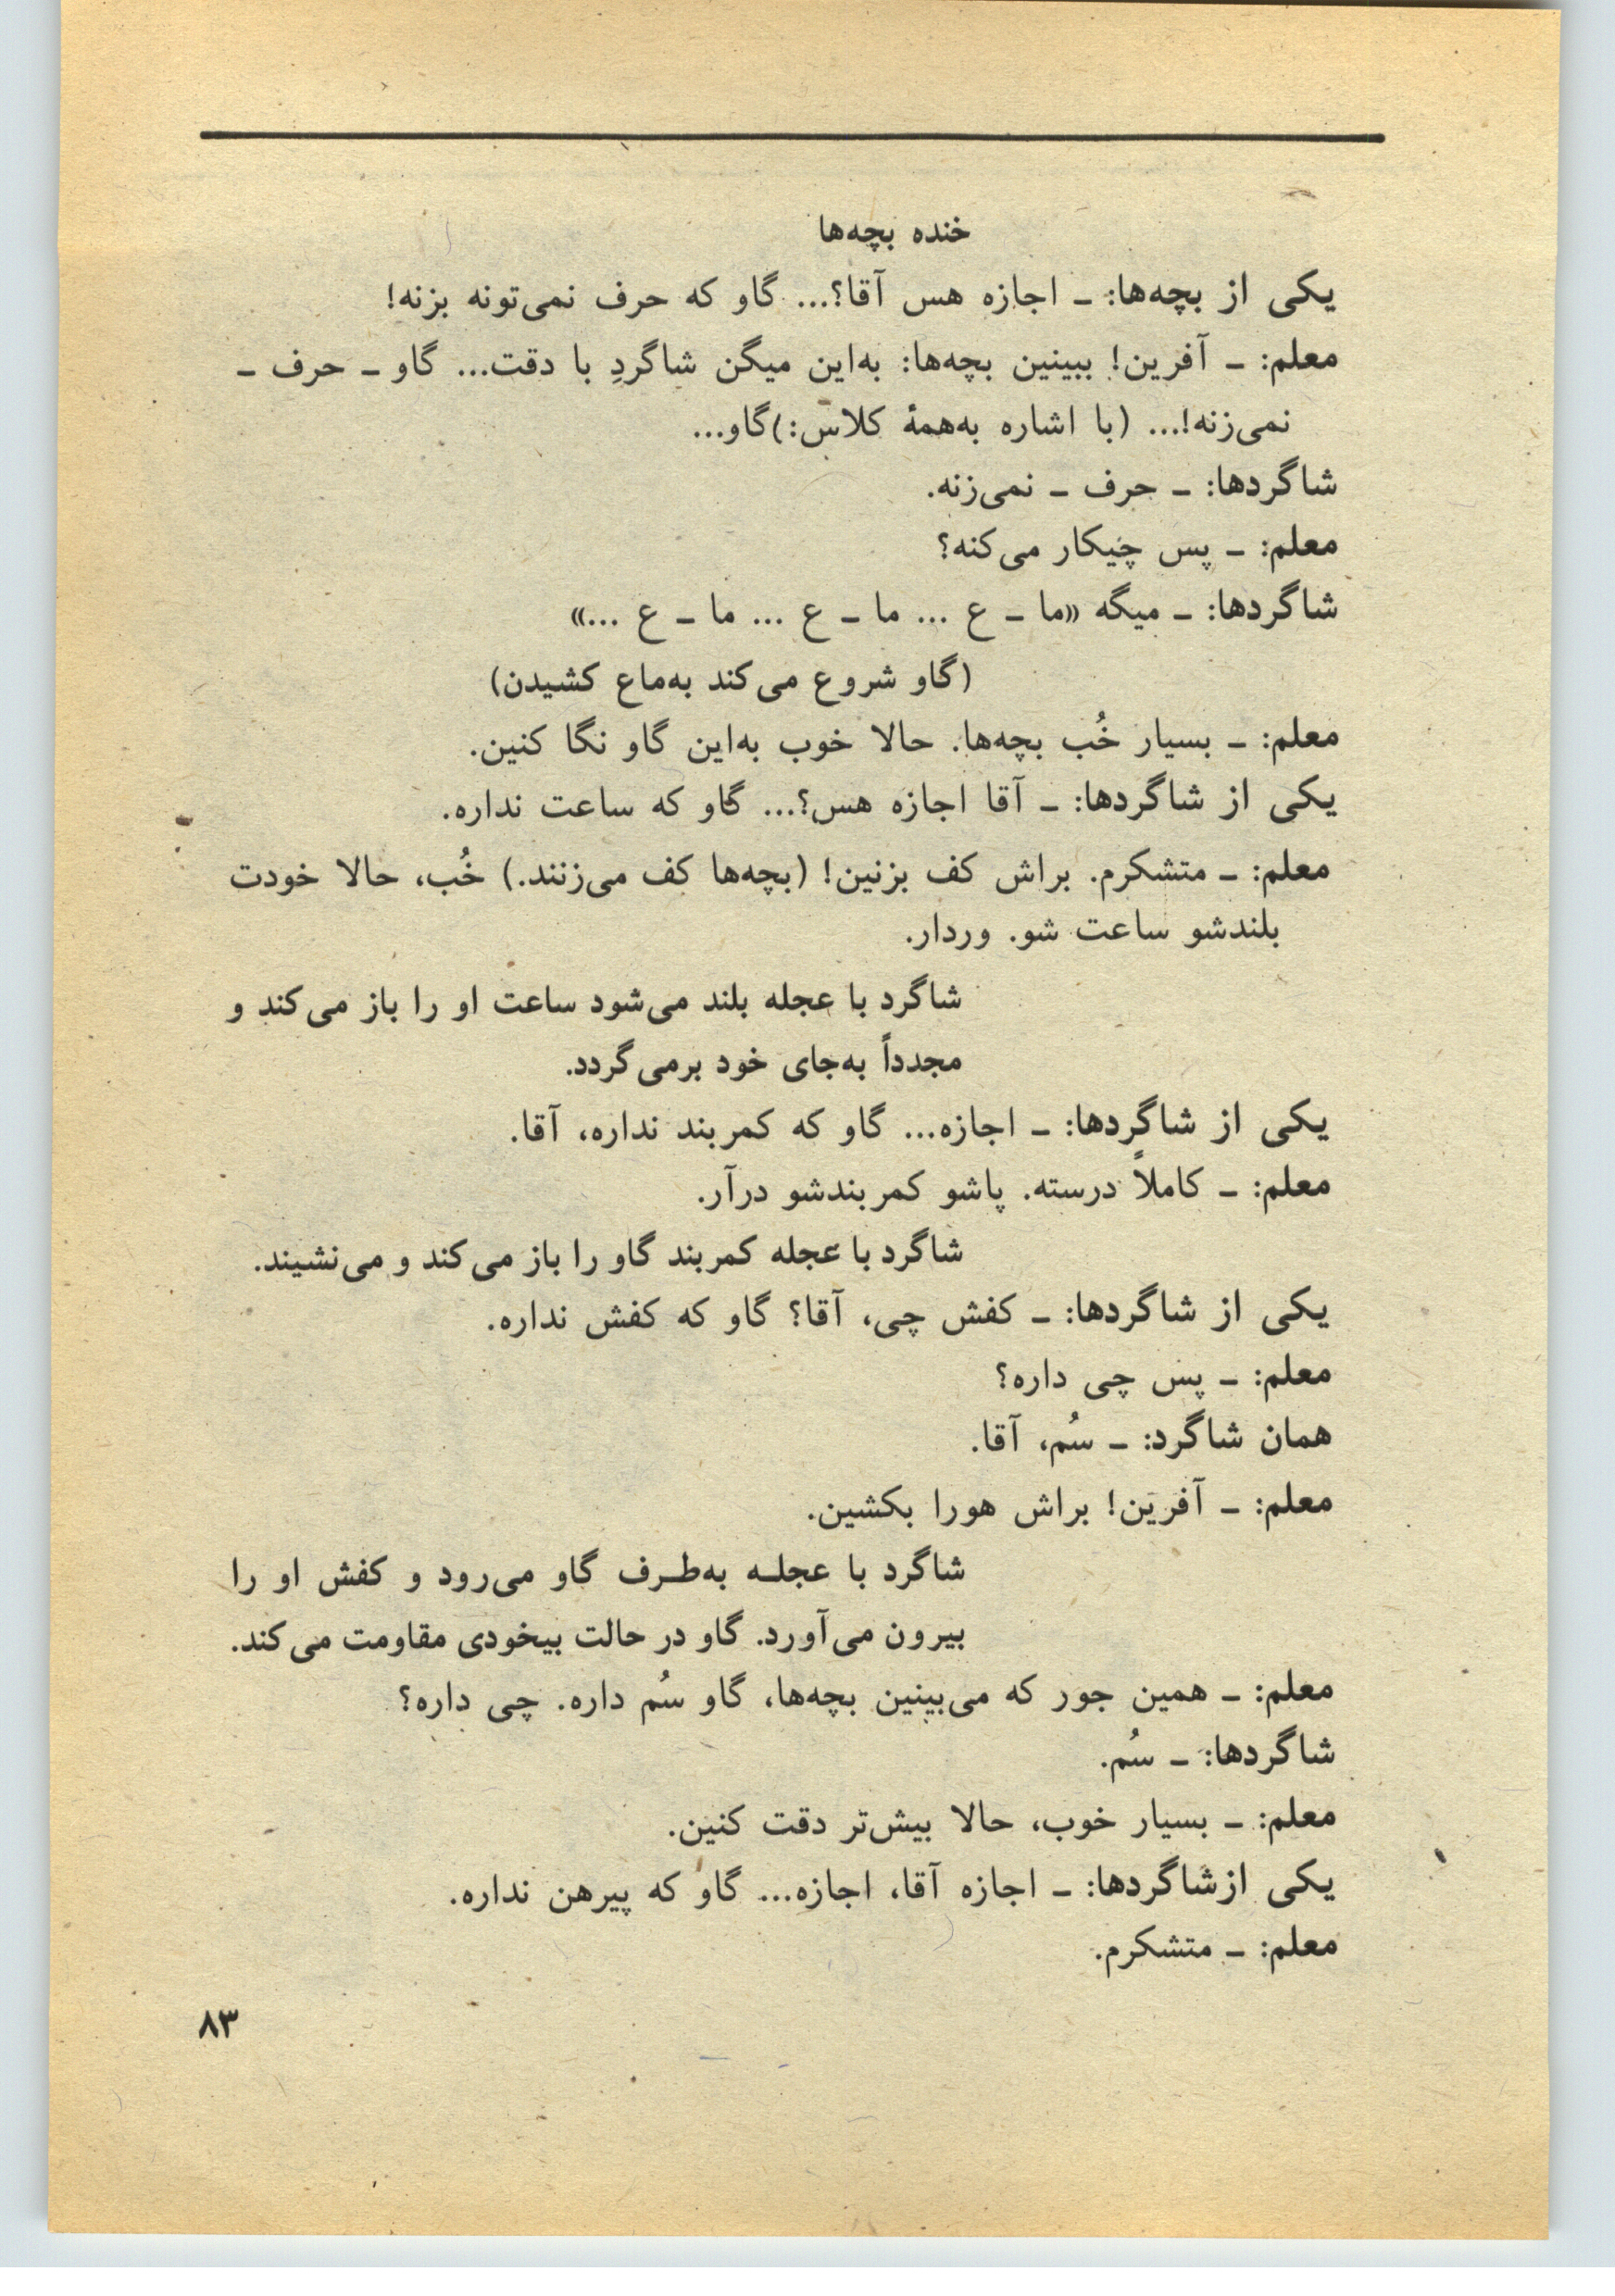 خنده بچه‌ها
یکی از بچه‌ها: ـ اجازه هس آقا؟... گاو که حرف نمی‌تونه بزنه!
معلم: ـ آفرین! ببینین بچه‌ها: به‌این میگن شاگردِ با دقت... گاو ـ حرف ـ
نمی‌زنه!... (با اشاره به‌همهٔ کلاس:)گاو...
شاگردها: ـ حرف ـ نمی‌زنه.
معلم: ـ پس چیکار می‌کنه؟
شاگردها: ـ میگه «ما ـ ع ... ما ـ ع ... ما ـ ع ...»
(گاو شروع می‌کند به‌ماع کشیدن)
معلم: ـ بسیار خُب بچه‌ها. حالا خوب به‌این گاو نگا کنین.
یکی از شاگردها: ـ آقا اجازه هس؟... گاو که ساعت نداره.
معلم: ـ متشکرم. براش کف بزنین! (بچه‌ها کف می‌زنند.) خُب، حالا خودت
بلندشو ساعت شو. وردار.
شاگرد با عجله بلند می‌شود ساعت او را باز می‌کند و
مجدداً به‌جای خود برمی‌گردد.
یکی از شاگردها: ـ اجازه... گاو که کمربند نداره، آقا.
معلم: ـ کاملاً درسته. پاشو کمربندشو درآر.
شاگرد با عجله کمربند گاو را باز می‌کند و می‌نشیند.
یکی از شاگردها: ـ کفش چی، آقا؟ گاو که کفش نداره.
معلم: ـ پس چی داره؟
همان شاگرد: ـ سُم، آقا.
معلم: ـ آفرین! براش هورا بکشین.
شاگرد با عجلـه به‌طـرف گاو می‌رود و کفش او را
بیرون می‌آورد. گاو در حالت بیخودی مقاومت می‌کند.
معلم: ـ همین جور که می‌بینین بچه‌ها، گاو سُم داره. چی داره؟
شاگردها: ـ سُم.
معلم: ـ بسیار خوب، حالا بیش‌تر دقت کنین.
یکی ازشاگردها: ـ اجازه آقا، اجازه... گاو که پیرهن نداره.
معلم: ـ متشکرم.
۸۳